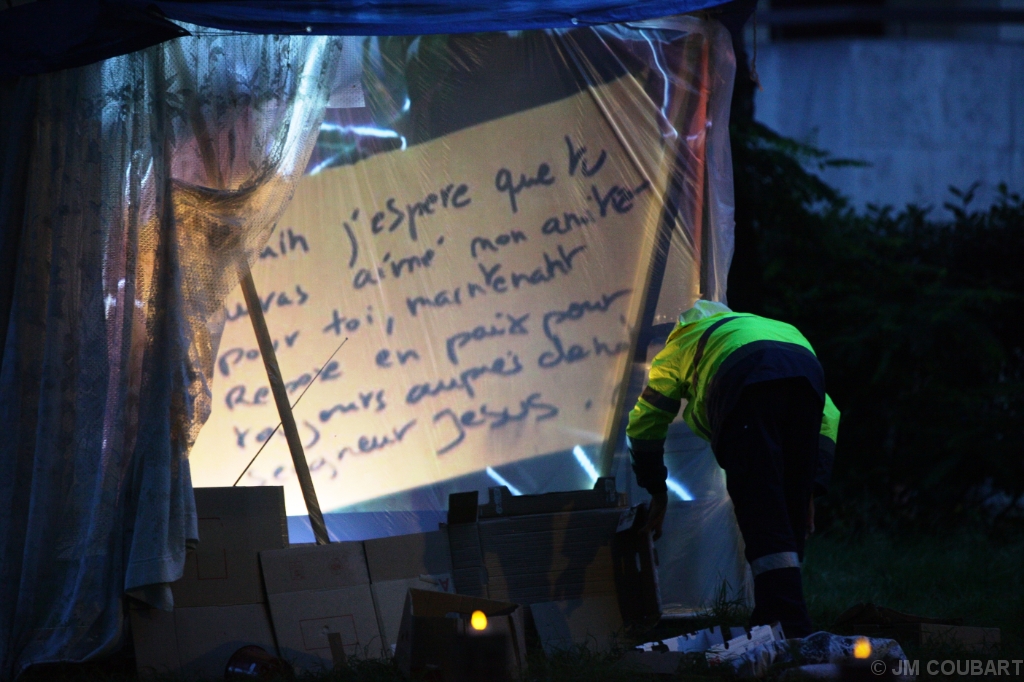 j'espère que tu
aimé mon amitié
pour toi, maintenant
Repose en paix pour
toujours auprès de
seigneur Jesus.
© JM COUBART